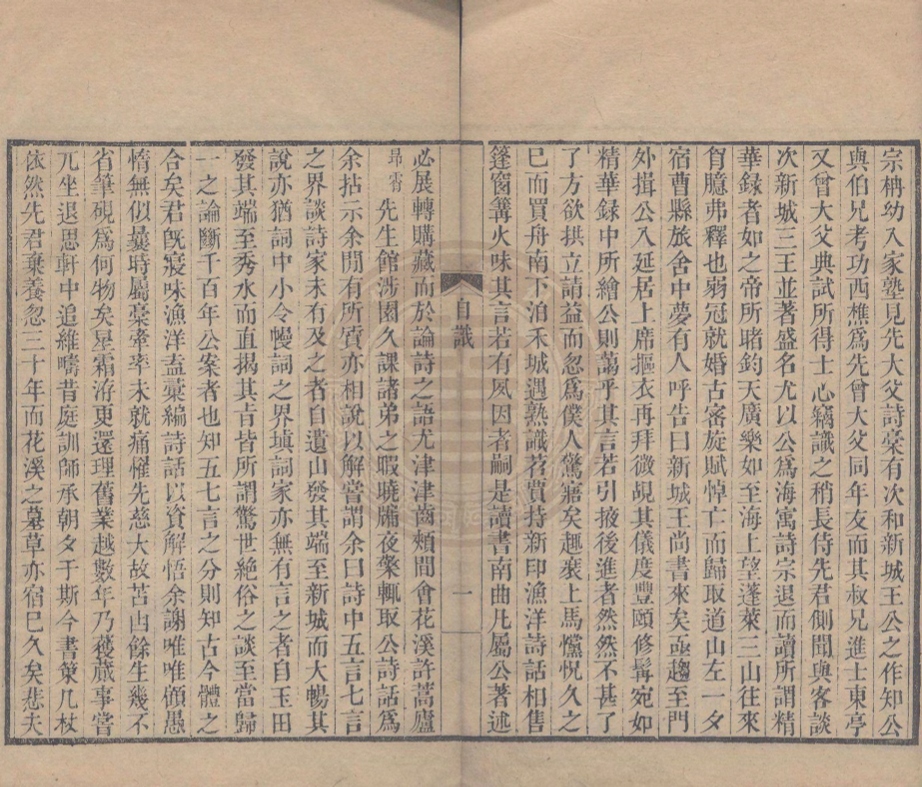 宗柟幼入家塾見先大父詩稾有次和新城王公之作知公
與伯兄考功西樵爲先曾大父同年友而其叔兄進士東亭
又曾大父典試所得士心竊識之稍長侍先君側聞與客談
次新城三王並著盛名尤以公爲海寓詩宗退而讀所謂精
華録者如之帝所睹鈞天廣樂如至海上望蓬萊三山往來
胷臆弗釋也弱冠就婚古密旋賦悼亡而歸取道山左一夕
宿曹縣旅舍中夢有人呼告曰新城王尚書來矣亟趨至門
外揖公入延居上席摳衣再拜微覘其儀度豐頤修髯宛如
精華録中所繪公則藹乎其言若引掖後進者然然不甚了
了方欲拱立請益而忽爲僕人驚寤矣趣裝上馬戃怳久之
巳而買舟南下泊禾城遇熟識苕賈持新印漁洋詩話相售
篷窗篝火味其言若有夙因者嗣是讀書南曲凡屬公著述
自識
一
必展轉購藏而於論詩之語尤津津齒頰間會花溪許蒿廬
昻霄先生館涉園久課諸弟之暇曉牕夜檠輒取公詩話爲
余拈示余間有所質亦相說以解嘗謂余曰詩中五言七言
之界談詩家未有及之者自遺山發其端至新城而大暢其
說亦猶詞中小令慢詞之界塡詞家亦無有言之者自玉田
發其端至秀水而直揭其旨皆所謂驚世絶俗之談至當歸
一之論斷千百年公案者也知五七言之分則知古今體之
合矣君旣寢味漁洋盍彚編詩話以資解悟余謝唯唯顧愚
惰無似曩時屬稾牽率未就痛懼先慈大故苫凷餘生幾不
省筆硯爲何物矣星霜洊更還理舊業越數年乃獲蕆事嘗
兀坐退思軒中追維疇昔庭訓師承朝夕于斯今書策几杖
依然先君棄養忽三十年而花溪之墓草亦宿巳久矣悲夫